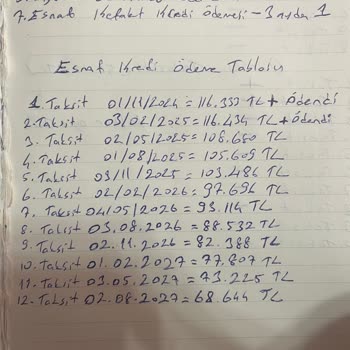 7. Esnaf Kefalet Kredi Ödemesi - 3 ayda 1
Esnaf Kredi Ödeme Tablosu
1. Taksit 01/11/2024 = 116.333 TL + Ödendi
2. Taksit 03/02/2025 = 116.434 TL + Ödendi
3. Taksit 02/05/2025 = 108.680 TL
4. Taksit 01/08/2025 = 105.609 TL
5. Taksit 03/11/2025 = 103.486 TL
6. Taksit 02/02/2026 = 97.696 TL
7. Taksit 04/05/2026 = 93.114 TL
8. Taksit 03.08.2026 = 88.532 TL
9. Taksit 02.11.2026 = 82.388 TL
10. Taksit 01.02.2027 = 77.807 TL
11. Taksit 03.05.2027 = 73.225 TL
12. Taksit 02.08.2027 = 68.644 TL